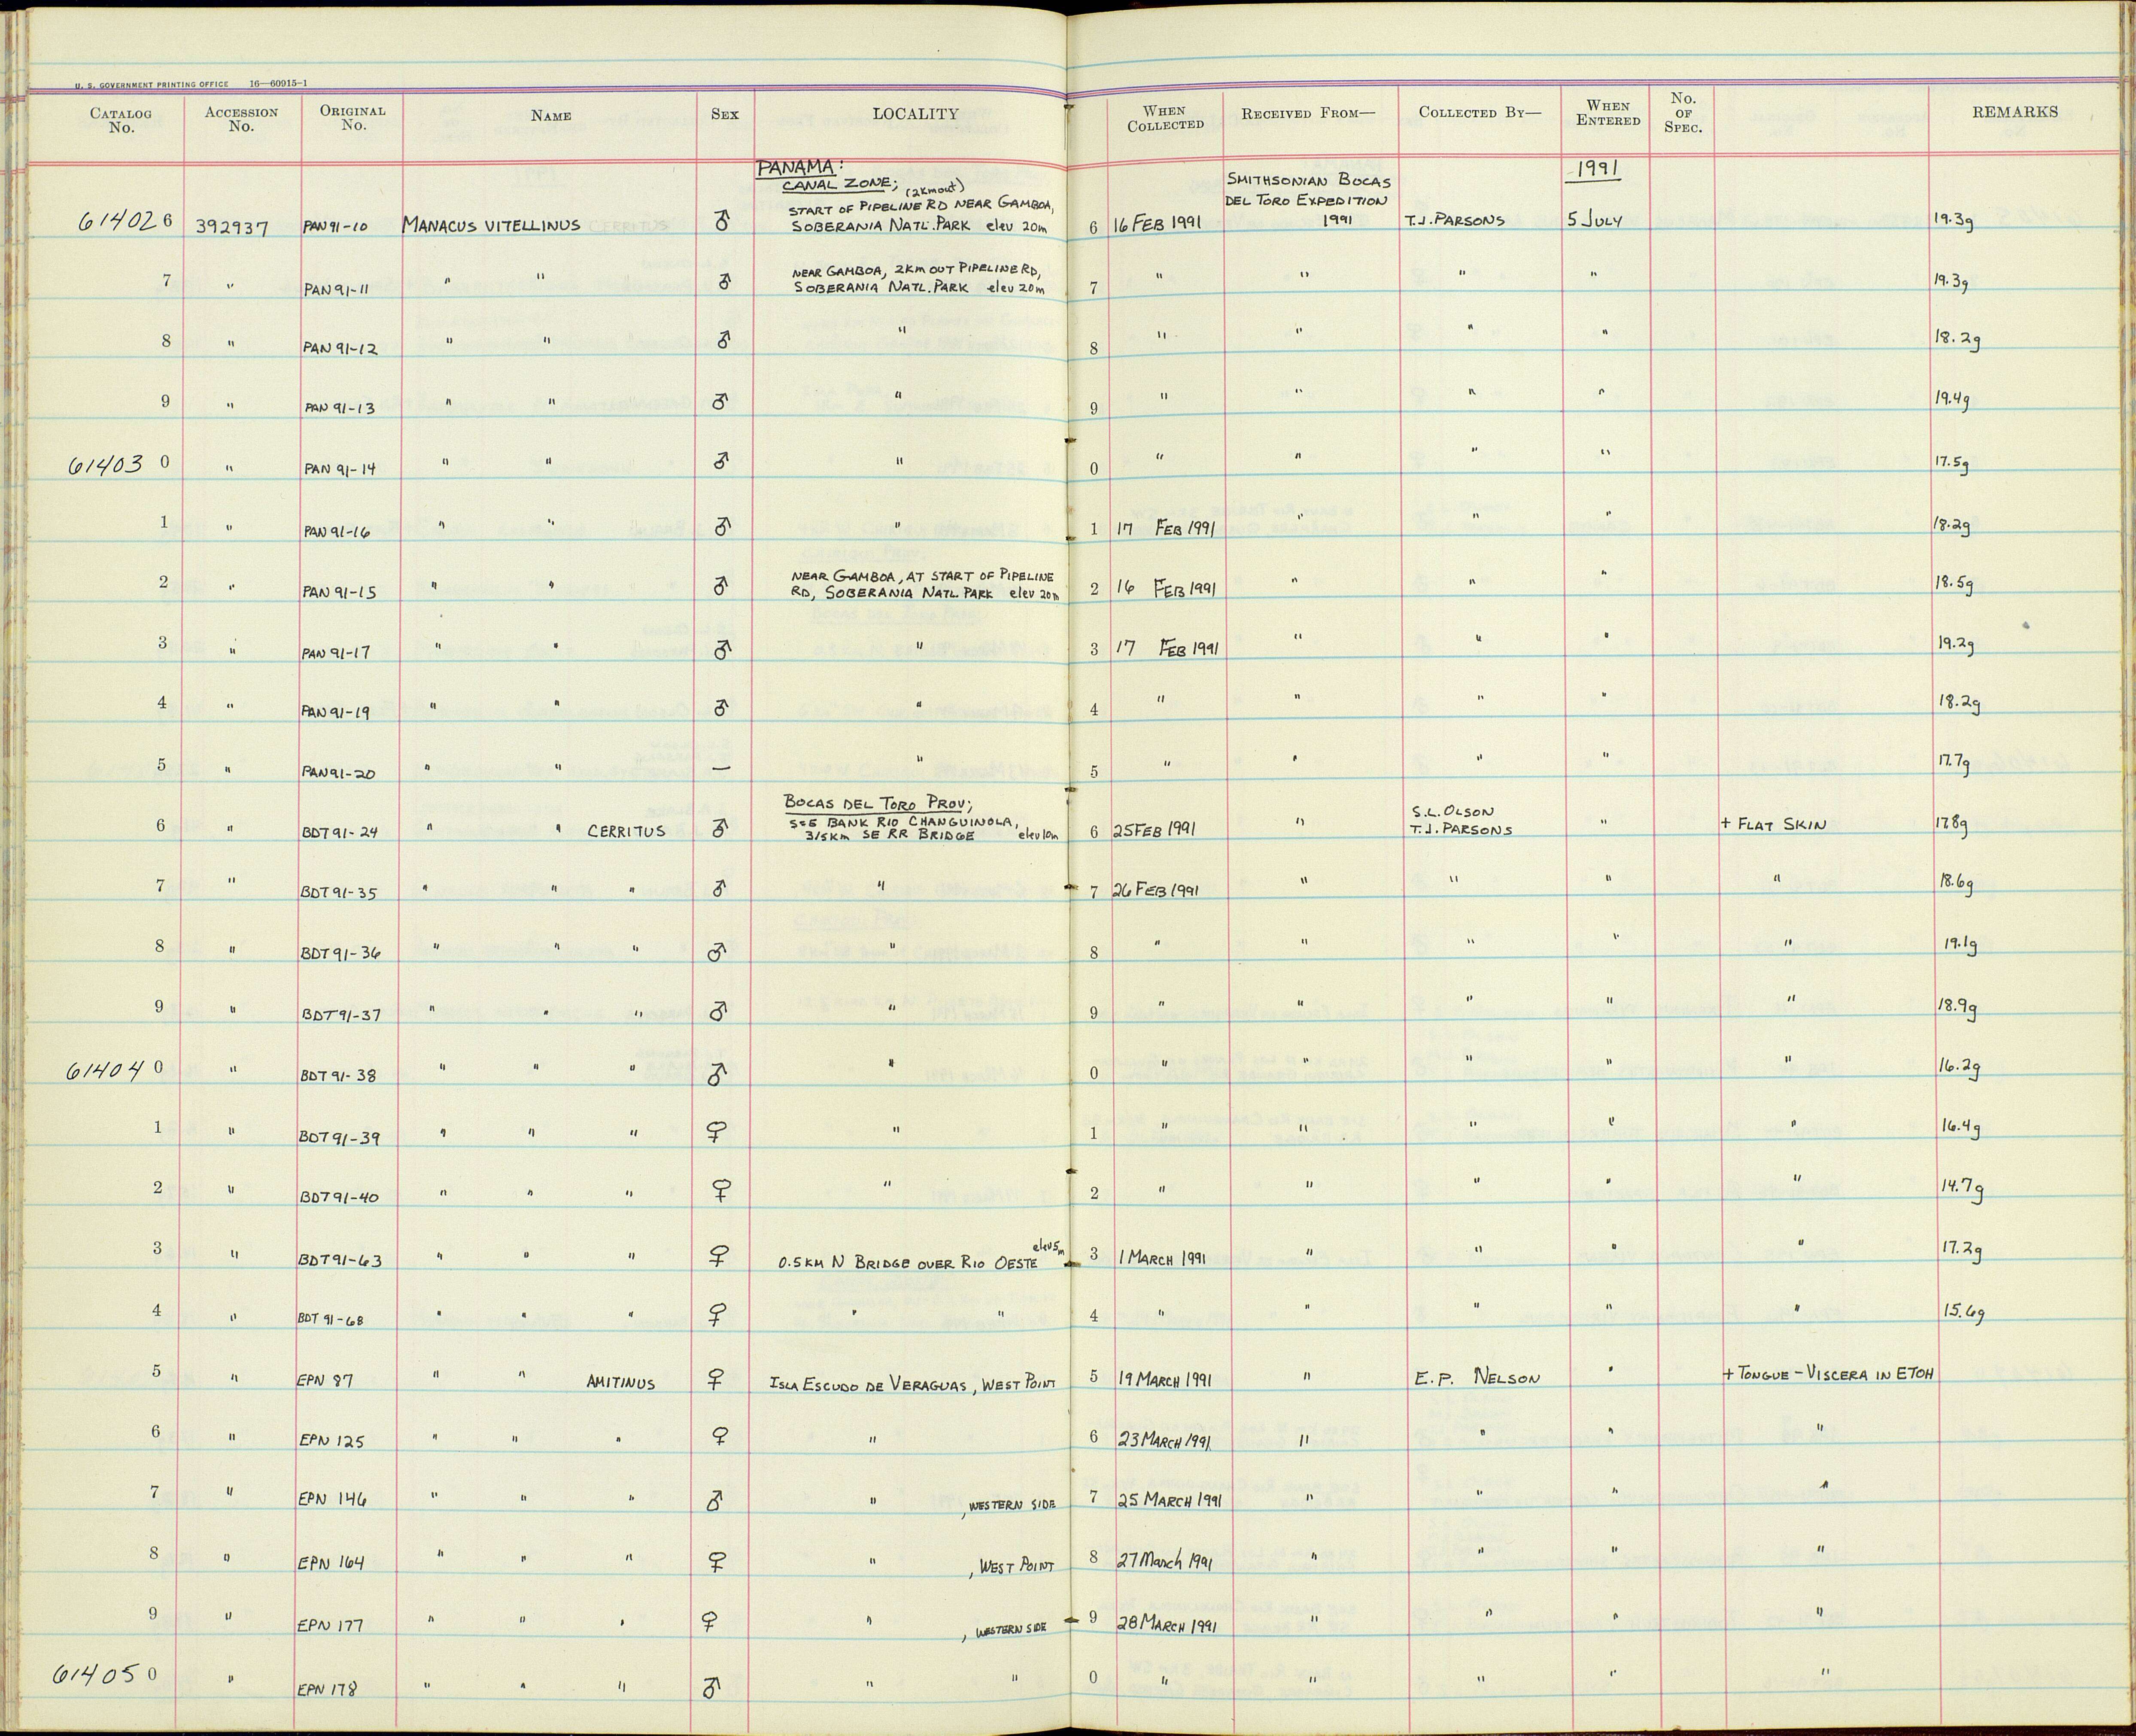 U. S. GOVERNMENT PRINTING OFFICE 16—60915-1
CATALOG No. ACCESSION No. ORIGINAL No. NAME SEX LOCALITY WHEN COLLECTED RECEIVED FROM— COLLECTED BY— WHEN ENTERED No. OF SPEC. REMARKS
PANAMA: 1991
CANAL ZONE; (2km out) SMITHSONIAN BOCAS
START OF PIPELINE RD NEAR GAMBOA, DEL TORO EXPEDITION
614026 392937 PAN 91-10 MANACUS VITELLINUS ♂ SOBERANIA NATL. PARK elev 20m 6 16 FEB 1991 1991 T.J. PARSONS 5 JULY 19.3g
NEAR GAMBOA, 2KM OUT PIPELINE RD,
7 " PAN 91-11 " " ♂ SOBERANIA NATL. PARK elev 20m 7 " " " " 19.3g
8 " PAN 91-12 " " ♂ " 8 " " " " 18.2g
9 " PAN 91-13 " " ♂ " 9 " " " " 19.4g
614030 " PAN 91-14 " " ♂ " 0 " " " " 17.5g
1 " PAN 91-16 " " ♂ " 1 17 FEB 1991 " " " 18.2g
NEAR GAMBOA, AT START OF PIPELINE
2 " PAN 91-15 " " ♂ RD, SOBERANIA NATL PARK elev 20m 2 16 FEB 1991 " " " 18.5g
3 " PAN 91-17 " " ♂ " 3 17 FEB 1991 " " " 19.2g
4 " PAN 91-19 " " ♂ " 4 " " " " 18.2g
5 " PAN 91-20 " " — " 5 " " " " 17.7g
BOCAS DEL TORO PROV;
SSE BANK RIO CHANGUINOLA, S.L. OLSON
6 " BDT 91-24 " " CERRITUS ♂ 3/5km SE RR BRIDGE elev 10m 6 25 FEB 1991 " T.J. PARSONS " + FLAT SKIN 17.8g
7 " BDT 91-35 " " " ♂ " 7 26 FEB 1991 " " " " 18.6g
8 " BDT 91-36 " " " ♂ " 8 " " " " " 19.1g
9 " BDT 91-37 " " " ♂ " 9 " " " " " 18.9g
614040 " BDT 91-38 " " " ♂ " 0 " " " " " 16.2g
1 " BDT 91-39 " " " ♀ " 1 " " " " " 16.4g
2 " BDT 91-40 " " " ♀ " 2 " " " " " 14.7g
3 " BDT 91-63 " " " ♀ 0.5 KM N BRIDGE OVER RIO OESTE elev 5m 3 1 MARCH 1991 " " " " 17.2g
4 " BDT 91-68 " " " ♀ " " 4 " " " " " 15.6g
5 " EPN 87 " " AMITINUS ♀ ISLA ESCUDO DE VERAGUAS, WEST POINT 5 19 MARCH 1991 " E.P. NELSON " + TONGUE - VISCERA IN ETOH
6 " EPN 125 " " " ♀ " 6 23 MARCH 1991 " " " "
7 " EPN 146 " " " ♂ " , WESTERN SIDE 7 25 MARCH 1991 " " " "
8 " EPN 164 " " " ♀ " , WEST POINT 8 27 March 1991 " " " "
9 " EPN 177 " " " ♀ " , WESTERN SIDE 9 28 MARCH 1991 " " " "
614050 " EPN 178 " " " ♂ " " 0 " " " " "